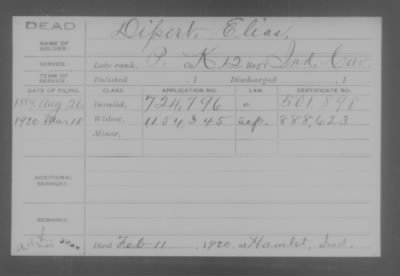 DEAD
NAME OF SOLDIER: Dipert, Elias,
SERVICE: Late rank, P. Co. K, 12 Reg't Ind. Cav.
TERM OF SERVICE: Enlisted , 1 Discharged , 1
DATE OF FILING. CLASS. APPLICATION NO. LAW. CERTIFICATE NO.
1889 Aug 26 Invalid, 724,796 501,898
1920 Mar 18 Widow, 1154345 Sep. 888,623
Minor,
ADDITIONAL SERVICES:
REMARKS:
Died Feb 11, 1920, at Hamlet, Ind.